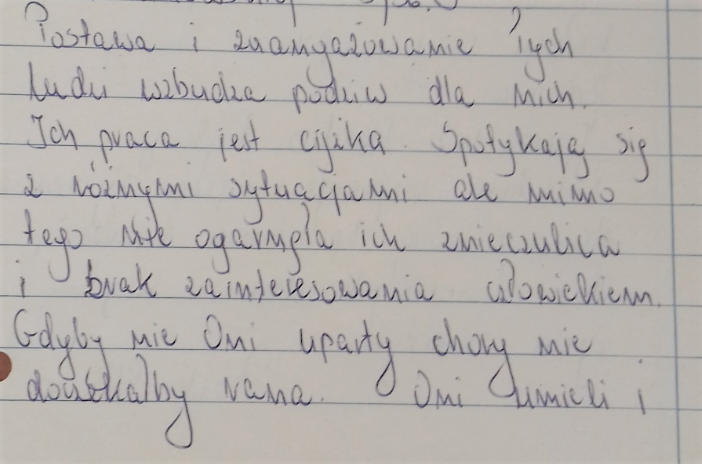 Postawa i zaangażowanie tych
ludzi wzbudza podziw dla nich.
Ich praca jest ciężka. Spotykają się
z różnymi sytuacjami ale mimo
tego nie ogarnęła ich znieczulica
i brak zainteresowania człowiekiem.
Gdyby nie Oni uparty chory nie
doczekałby rana. Oni umieli i